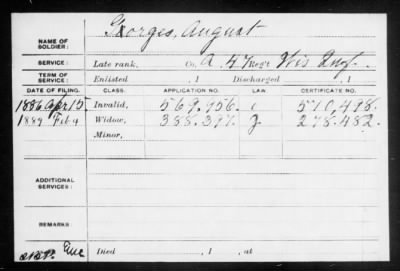 Georges, August
NAME OF SOLDIER:
SERVICE: Late rank, Co. A, 47 Reg't Wis Inf.
TERM OF SERVICE: Enlisted , 1 Discharged , 1
DATE OF FILING. CLASS. APPLICATION NO. LAW. CERTIFICATE NO.
1886 Apr 15. Invalid, 569,956. 510,498.
1889 Feb 4 Widow, 388.391. 278.482.
Minor,
ADDITIONAL SERVICES:
REMARKS:
Died , 1 , at